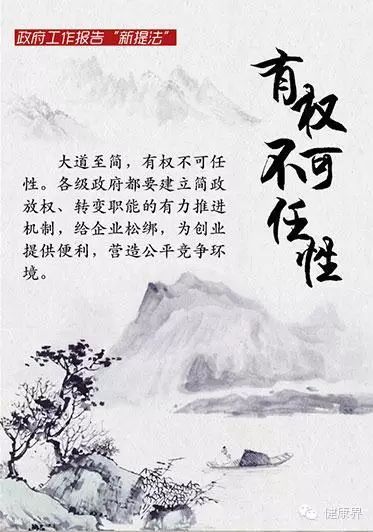 政府工作报告“新提法”
有权
不可
任性
大道至简，有权不可任
性。各级政府都要建立简政
放权、转变职能的有力推进
机制，给企业松绑，为创业
提供便利，营造公平竞争环
境。
健康界